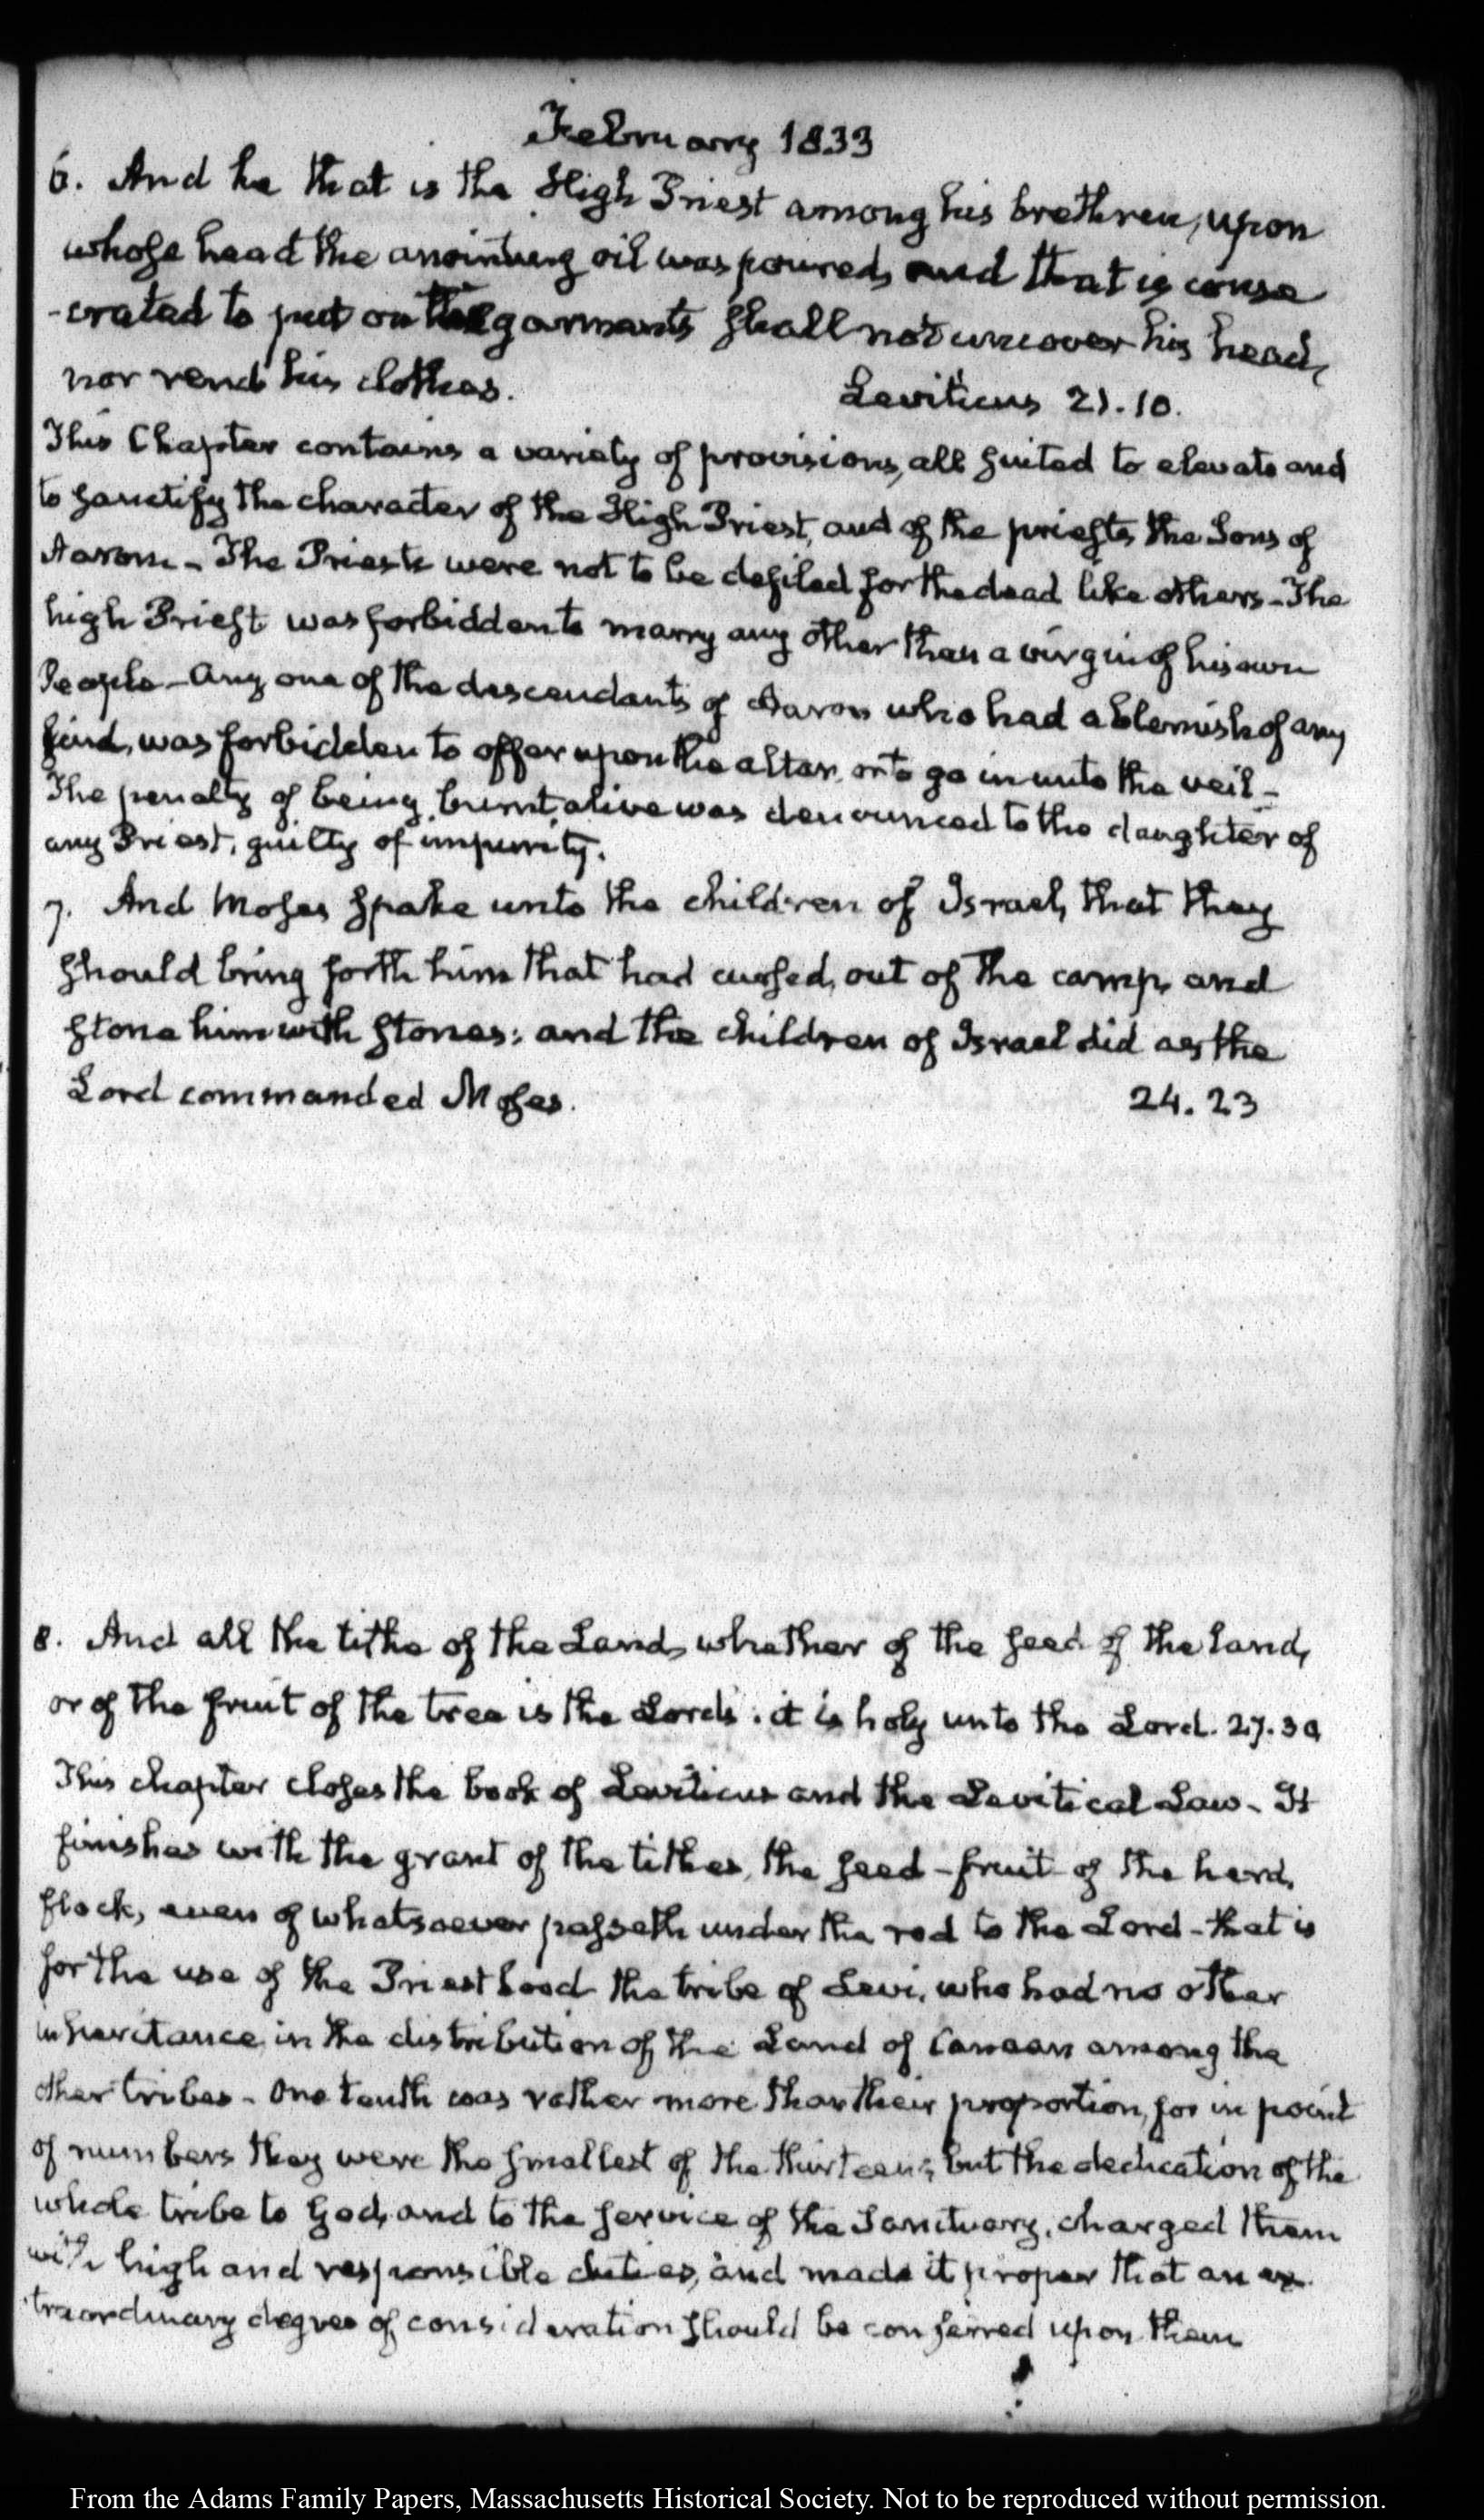 February 1833
6. And he that is the High Priest among his brethren, upon
whose head the anointing oil was poured, and that is conse
-crated to put on the garments shall not uncover his head,
nor rend his clothes. Leviticus 21.10.
This Chapter contains a variety of provisions, all suited to elevate and
to sanctify the character of the High Priest, and of the priests, the Sons of
Aaron - The Priests were not to be defiled for the dead like others - The
high Priest was forbidden to marry any other than a virgin of his own
People - Any one of the descendants of Aaron who had a blemish of any
kind, was forbidden to offer upon the altar, or to go in unto the veil -
The penalty of being burnt alive was denounced to the daughter of
any Priest, guilty of impurity.
7. And Moses spake unto the children of Israel, that they
should bring forth him that had cursed, out of the camp, and
stone him with stones: and the children of Israel did as the
Lord commanded Moses. 24.23
8. And all the tithe of the Land, whether of the seed of the land,
or of the fruit of the tree is the Lords: it is holy unto the Lord. 27.30
This chapter closes the book of Leviticus and the Levitical Law - It
finishes with the grant of the tithes, the seed - fruit of the herd,
flock, even of whatsoever passeth under the rod to the Lord - that is
for the use of the Priesthood the tribe of Levi, who had no other
inheritance in the distribution of the Land of Canaan among the
other tribes - One tenth was rather more than their proportion, for in point
of numbers they were the smallest of the thirteen; but the dedication of the
whole tribe to God, and to the service of the Sanctuary, charged them
with high and responsible duties, and made it proper that an ex
traordinary degree of consideration should be conferred upon them
From the Adams Family Papers, Massachusetts Historical Society. Not to be reproduced without permission.